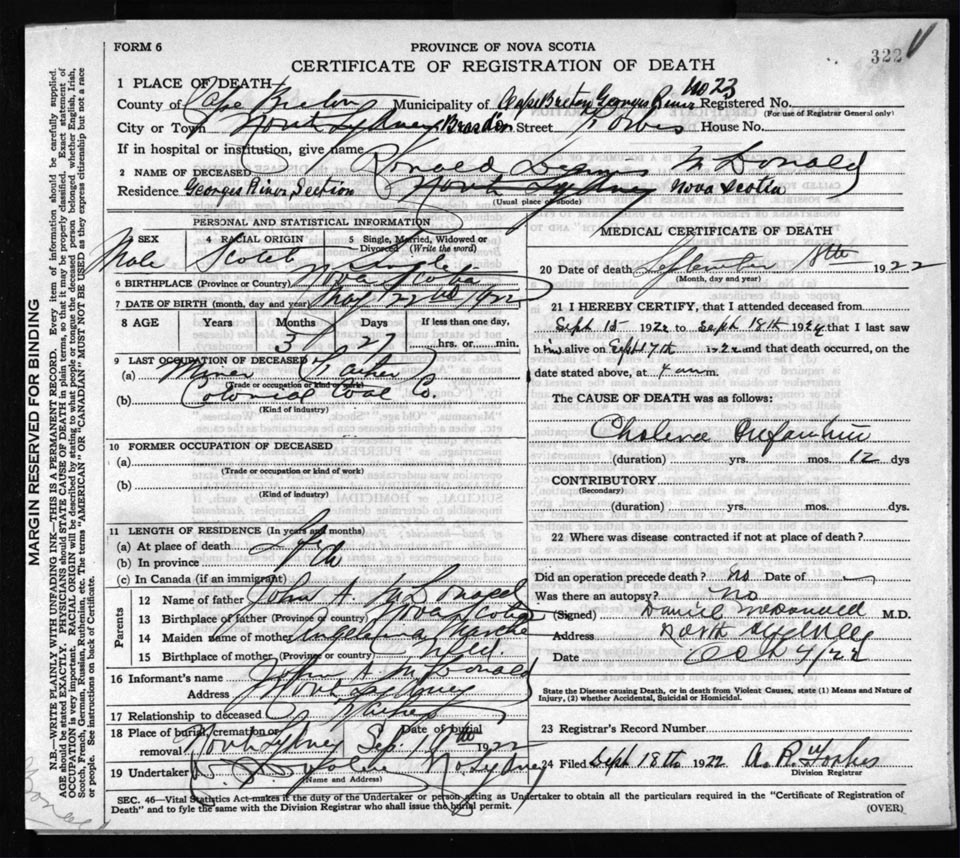 FORM 6
PROVINCE OF NOVA SCOTIA
322
CERTIFICATE OF REGISTRATION OF DEATH
1 PLACE OF DEATH
No 23
County of Cape Breton Municipality of Cape Breton Georges River Registered No.
(For use of Registrar General only)
City or Town North Sydney Street Forbes House No.
If in hospital or institution, give name
2 NAME OF DECEASED Ronald McDonald
Residence Georges River Section North Sydney Nova Scotia
(Usual place of abode)
PERSONAL AND STATISTICAL INFORMATION
3 SEX Male
4 RACIAL ORIGIN Scotch
5 Single, Married, Widowed or Divorced (Write the word) Single
6 BIRTHPLACE (Province or Country) Nova Scotia
7 DATE OF BIRTH (month, day and year) May 22nd 1922
8 AGE Years Months Days If less than one day,
3 27 hrs. or min.
9 LAST OCCUPATION OF DECEASED
(a) Miner Father
(Trade or occupation or kind of work)
(b) Colonial Coal Co.
(Kind of industry)
10 FORMER OCCUPATION OF DECEASED
(a)
(Trade or occupation or kind of work)
(b)
(Kind of industry)
11 LENGTH OF RESIDENCE (In years and months)
(a) At place of death
(b) In province
(c) In Canada (if an immigrant)
Parents
12 Name of father John A. McDonald
13 Birthplace of father (Province or country) Nova Scotia
14 Maiden name of mother
15 Birthplace of mother (Province or country) Nfld.
16 Informant's name John A. McDonald
Address North Sydney
17 Relationship to deceased Father
18 Place of burial, cremation or removal North Sydney Date of burial Sep. 1922
19 Undertaker No Sydney
(Name and Address)
MEDICAL CERTIFICATE OF DEATH
20 Date of death September 18th 1922
(Month, day and year)
21 I HEREBY CERTIFY, that I attended deceased from
Sept 15 1922 to Sept 18th 1922 that I last saw
him alive on Sept 17th 1922 and that death occurred, on the
date stated above, at 4 a m.
The CAUSE OF DEATH was as follows:
Cholera Infantum
(duration) yrs. mos. 12 dys
CONTRIBUTORY
(Secondary)
(duration) yrs. mos. dys.
22 Where was disease contracted if not at place of death?
Did an operation precede death? No Date of
Was there an autopsy? No
(Signed) Daniel McDonald M.D.
Address North Sydney
Date Oct 4/22
State the Disease causing Death, or in death from Violent Causes, state (1) Means and Nature of
Injury, (2) whether Accidental, Suicidal or Homicidal.
23 Registrar's Record Number
24 Filed Sept 18th 1922 A. R. Forbes
Division Registrar
SEC. 46—Vital Statistics Act makes it the duty of the Undertaker or person acting as Undertaker to obtain all the particulars required in the "Certificate of Registration of
Death" and to fyle the same with the Division Registrar who shall issue the burial permit.
(OVER)
MARGIN RESERVED FOR BINDING
N.B.—WRITE PLAINLY WITH UNFADING INK—THIS IS A PERMANENT RECORD. Every item of information should be carefully supplied.
AGE should be stated EXACTLY. PHYSICIANS should STATE CAUSE OF DEATH in plain terms, so that it may be properly classified. Exact statement of
OCCUPATION is very important. RACIAL ORIGIN will be described by stating to what people or tongue the deceased person belonged whether English, Irish,
Scotch, French, German, Russian, Ruthenian, etc. The terms "AMERICAN" OR "CANADIAN" MUST NOT BE USED as they express citizenship but not a race
or people. See instructions on back of Certificate.